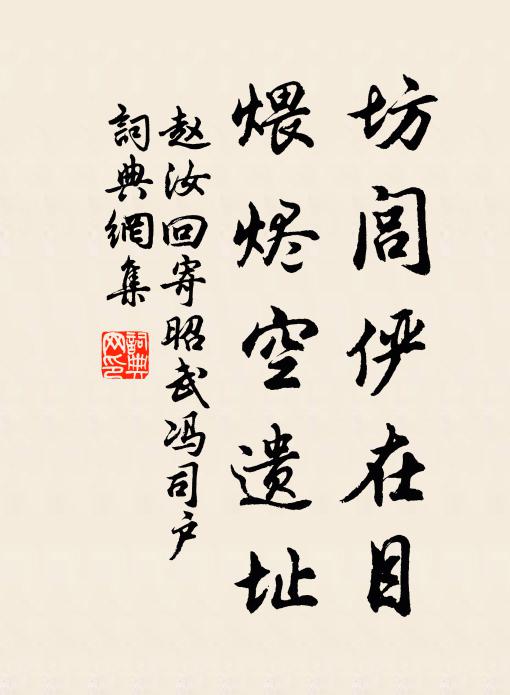 坊闾俨在目
煨烬空遗址
赵汝回寄昭武冯司户
詞典網集
詞典网印